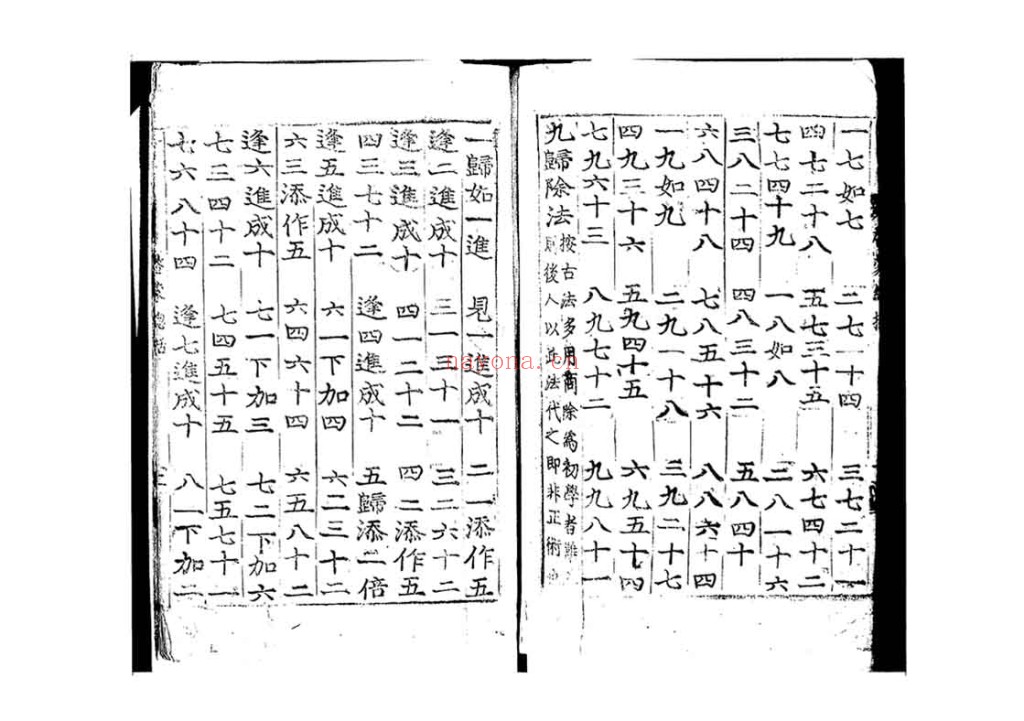 一七如七 二七一十四 三七二十一
四七二十八 五七三十五 六七四十二
七七四十九 一八如八 二八一十六
三八二十四 四八三十二 五八四十
六八四十八 七八五十六 八八六十四
一九如九 二九一十八 三九二十七
四九三十六 五九四十五 六九五十四
七九六十三 八九七十二 九九八十一
九歸除法 按古法多用商除為初學者難
則後人以此法代之即非正術也
一歸如一進 見一進成十 二一添作五
逢二進成十 三一三十一 三二六十二
逢三進成十 四一二十二 四二添作五
四三七十二 逢四進成十 五歸添二倍
逢五進成十 六一下加四 六二三十二
六三添作五 六四六十四 六五八十二
逢六進成十 七一下加三 七二下加六
七三四十二 七四五十五 七五七十一
七六八十四 逢七進成十 八一下加二
nayona.cn